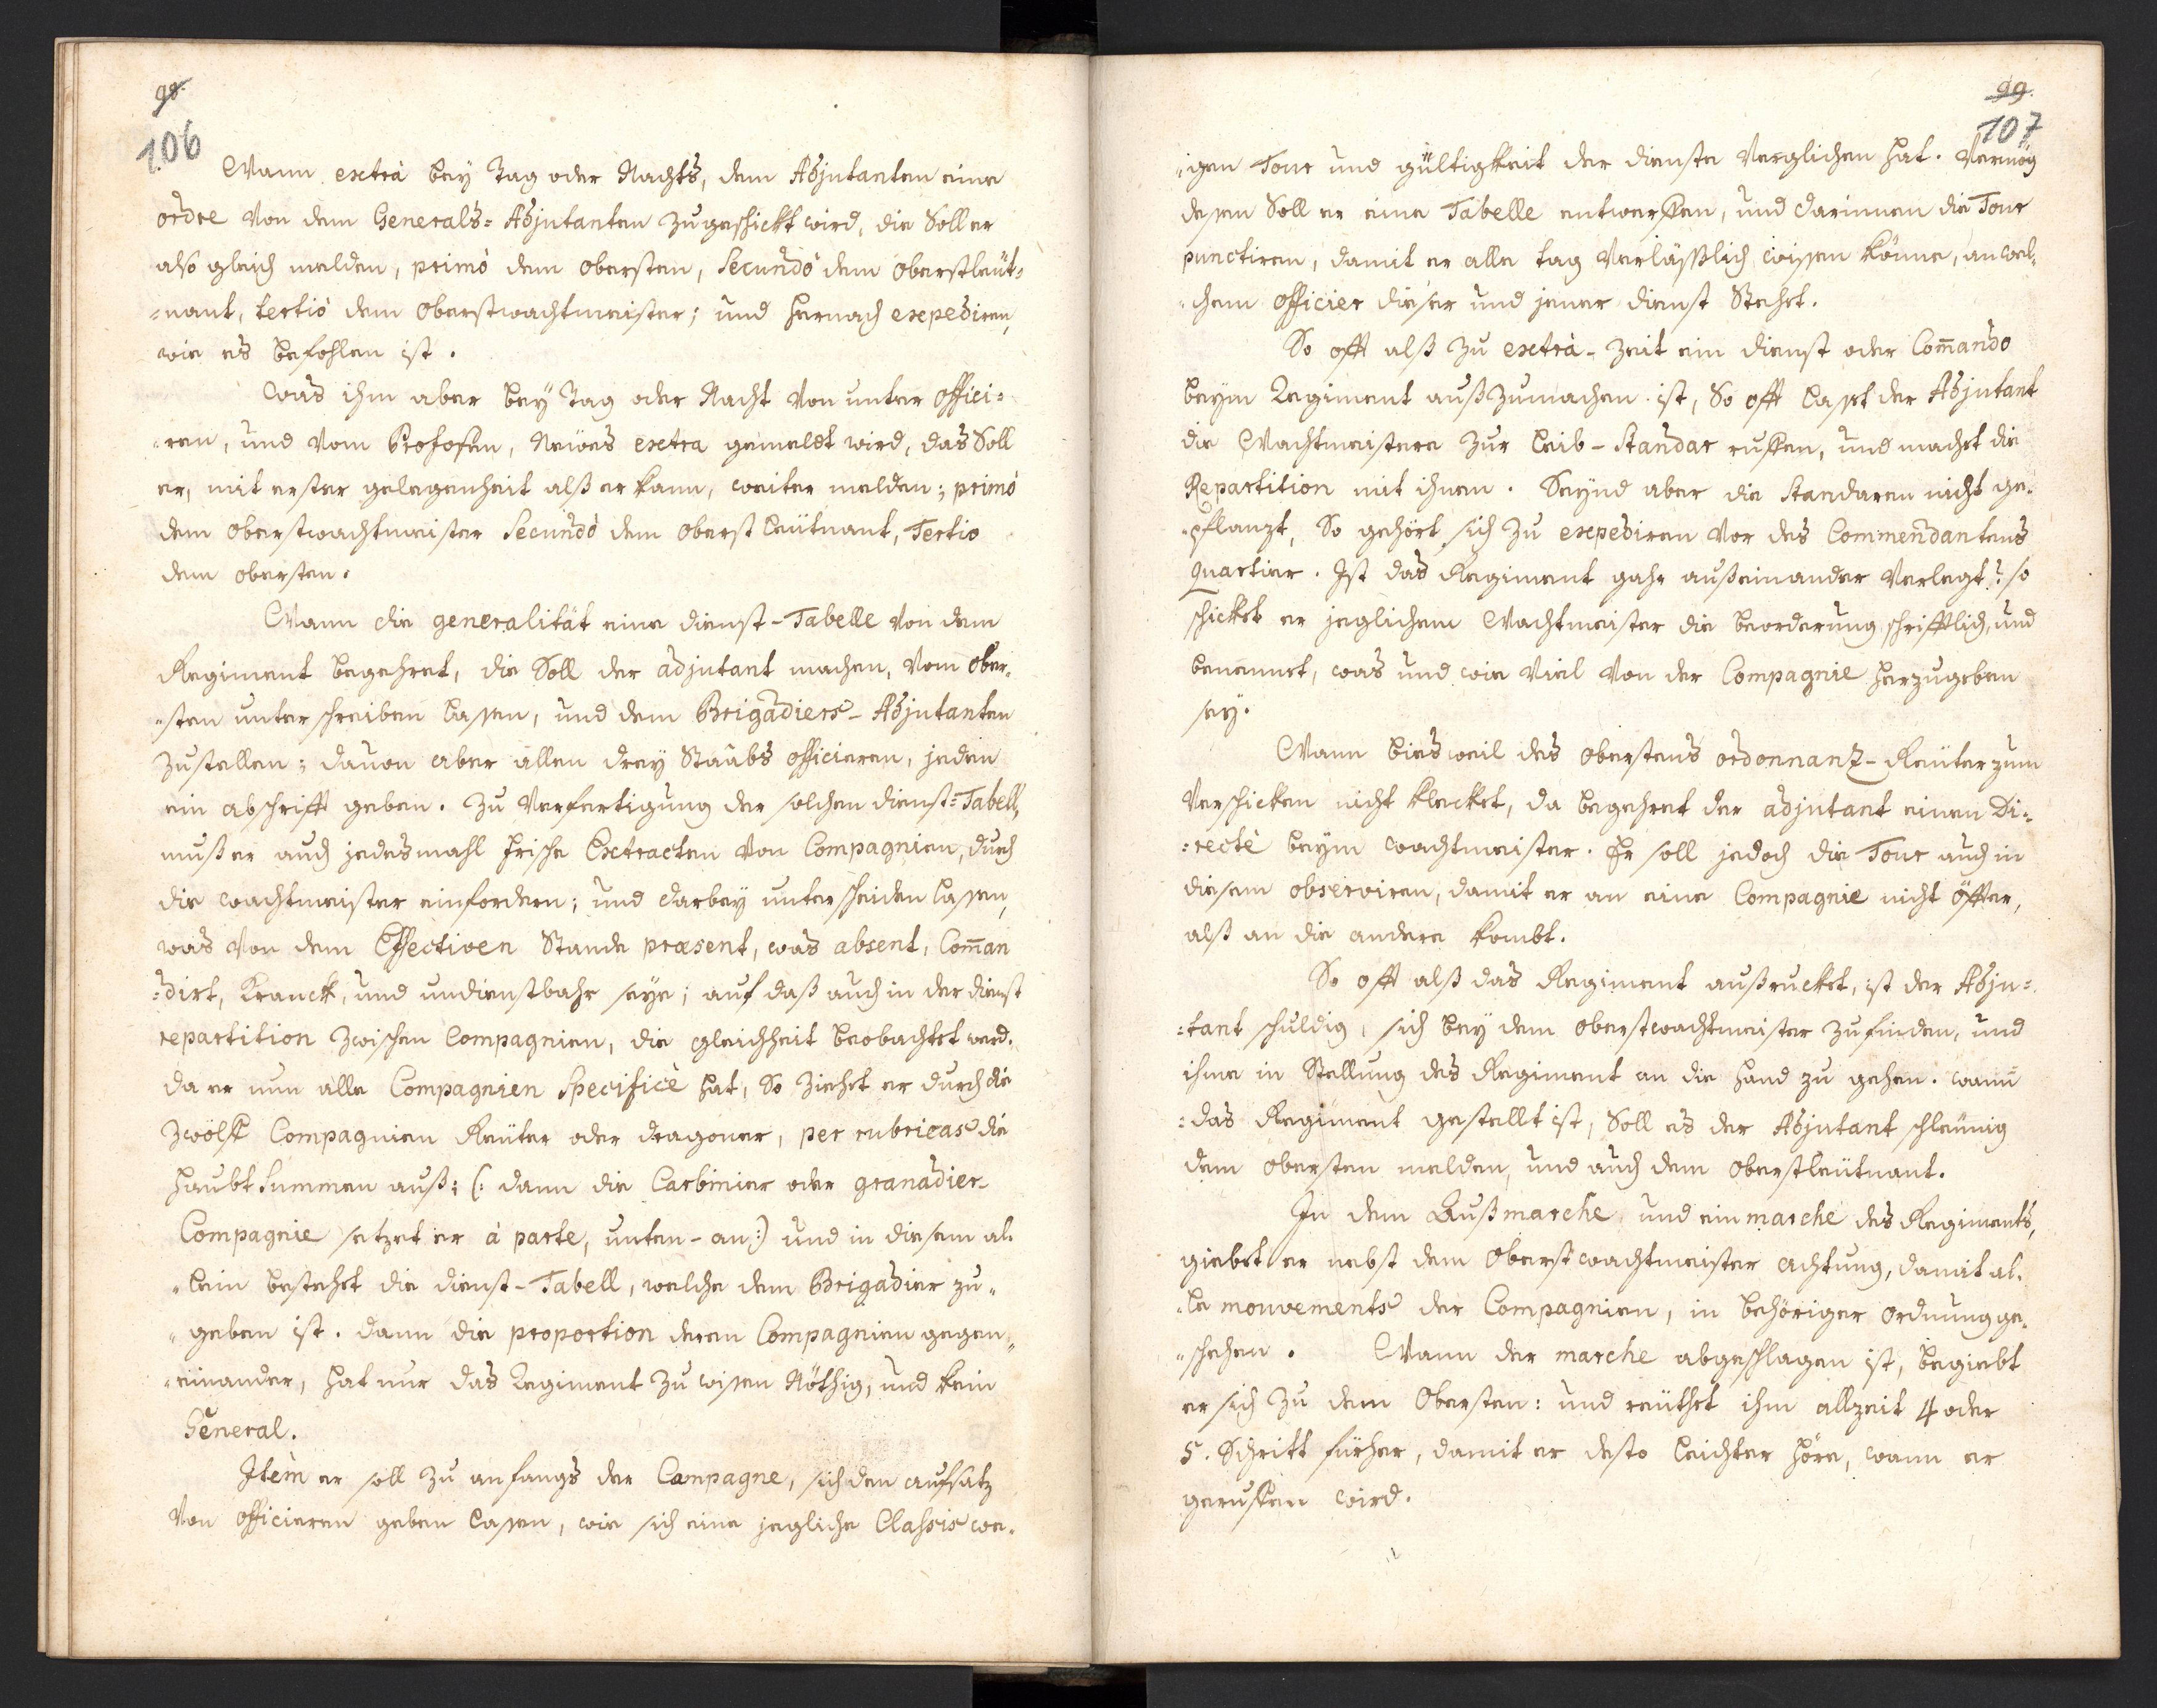 98.
106
Wann extrà bey Tag oder Nachts, dem Adjutanten eine
ordre von dem Generals=Adjutanten zugeschickt wird, die Soll er
also gleich melden, primò dem obersten, Secundò dem oberstleüt=
=nant, tertiò dem oberstwachtmeister; und hernach expediren,
wie es befohlen ist.
Was ihm aber bey Tag oder Nacht von unter offici=
=ren, und vom Profosen, Neües extra gemeldt wird, das Soll
er, mit erster gelegenheit alß er kann, weiter melden; primò
dem oberstwachtmeister Secundò dem oberst leütnant, Tertio
dem obersten.
Wann die generalität eine dienst-Tabelle von dem
Regiment begehret, die Soll der adjutant machen, vom ober=
=sten unterschreiben lassen, und dem Brigadiers-Adjutanten
zustellen; dauon aber allen drey Staabs officieren, jedem
ein abschrifft geben. Zu Verfertigung der solchen dienst=Tabell,
muß er auch jedesmahl frische Extracten von Compagnien, durch
die wachtmeister einfordern; und darbey unterscheiden lassen,
was von dem Effectiven Stande præsent, was absent, Com̅an
=dirt, Kranck, und undienstbahr seye; auf daß auch in der dienst
repartition zwischen Compagnien, die gleichheit beobachtet werd.
da er nun alle Compagnien Specificè hat, So ziehet er durch die
zwölff Compagnien Reüter oder dragoner, per rubricas die
haubt Summen auß; (: dann die Carbinier oder granadier-
Compagnie setzet er à parte, unten-an:) und in diesem al=
=lein bestehet die dienst-Tabell, welche dem Brigadier zu=
=geben ist. dann die proportion deren Compagnien gegen=
=einander, hat nur das Regiment zu wissen Nöthig, und kein
General.
Itèm er soll zu anfangs der Campagne, sich den aufsatz
von officieren geben lassen, wie sich eine jegliche Classis we=
99.
107
=gen Tour und gültigkeit der dienste verglichen hat. Vermög
dessen Soll er eine Tabelle entwerffen, und darinnen die Tour
punctiren, damit er alle tag verläßlich wissen könne, an wel=
=chem officier dieser und jener dienst Stehet.
So offt alß zu extrà-zeit ein dienst oder Com̅ando
beym Regiment außzumachen ist, So offt lasset der Adjutant
die Wachtmeistere zur Leib-Standar ruffen, und machet die
Repartition mit ihnen. Seynd aber die Standaren nicht ge=
=pflanzt, So gehört sich zu expediren vor des Commendantens
quartier. Ist das Regiment gahr außeinander verlegt? so
schicket er jeglichem Wachtmeister die beorderung schrifftlich, und
benennet, was und wie viel von der Compagnie herzugeben
sey.
Wann biesweil des oberstens ordonnanz-Reüter zum
verschicken nicht klecket, da begehret der adjutant einen Di=
=rectè beym wachtmeister. Er soll jedoch die Tour auch in
diesem observiren, damit er an eine Compagnie nicht öffter,
alß an die andere kombt.
So offt alß das Regiment außrucket, ist der Adju=
=tant schuldig, sich bey dem oberstwachtmeister zufinden, und
ihme in Stellung des Regiment an die hand zu gehen. wann̅
=das Regiment gestellt ist, Soll es der Adjutant schleünig
dem obersten melden, und auch dem oberstleütnant.
In dem Außmarche und ein marche des Regiments,
giebet er nebst dem oberstwachtmeister achtung, damit al=
=le mouvements der Compagnien, in behöriger ordnung ge=
=schehen. Wann der marche abgeschlagen ist, begiebt
er sich zu dem Obersten: und reüthet ihm allzeit 4 oder
5. Schritt fürher, damit er desto leichter höre, wann er
geruffen wird.